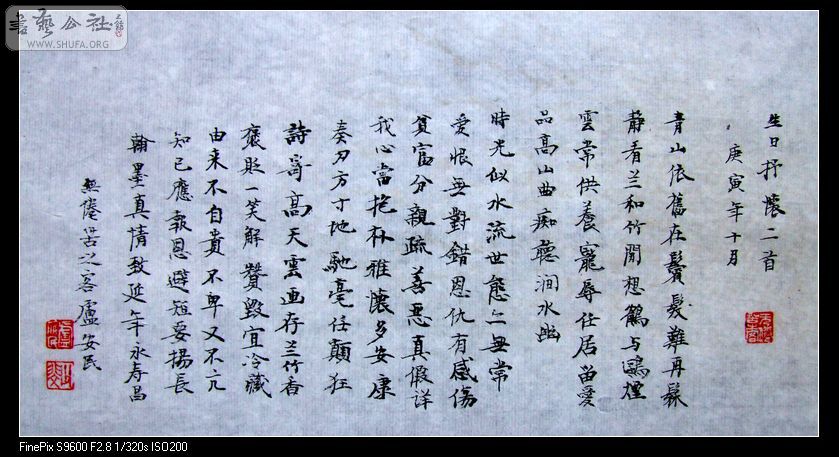 書藝公社
WWW.SHUFA.ORG
生日抒懷二首
庚寅年十月
青山依舊在鬢髮難再
靜看兰和竹閒想鶴与鷗煙
雲常供養寵辱任居留愛
品高山曲痴聽澗水幽
時光似水流世態亦無常
愛恨無對錯恩仇有感傷
貧富分親疏善惡真假詳
我心當抱朴雅懷多安康
奏刀方寸地馳毫任顛狂
詩哥高天雲画存兰竹香
褒貶一笑解贊毀宜冷藏
由来不自貴不卑又不亢
知己應報恩避短要揚長
翰墨真情致延年永寿昌
無倦芸之客盧安民
FinePix S9600 F2.8 1/320s ISO200